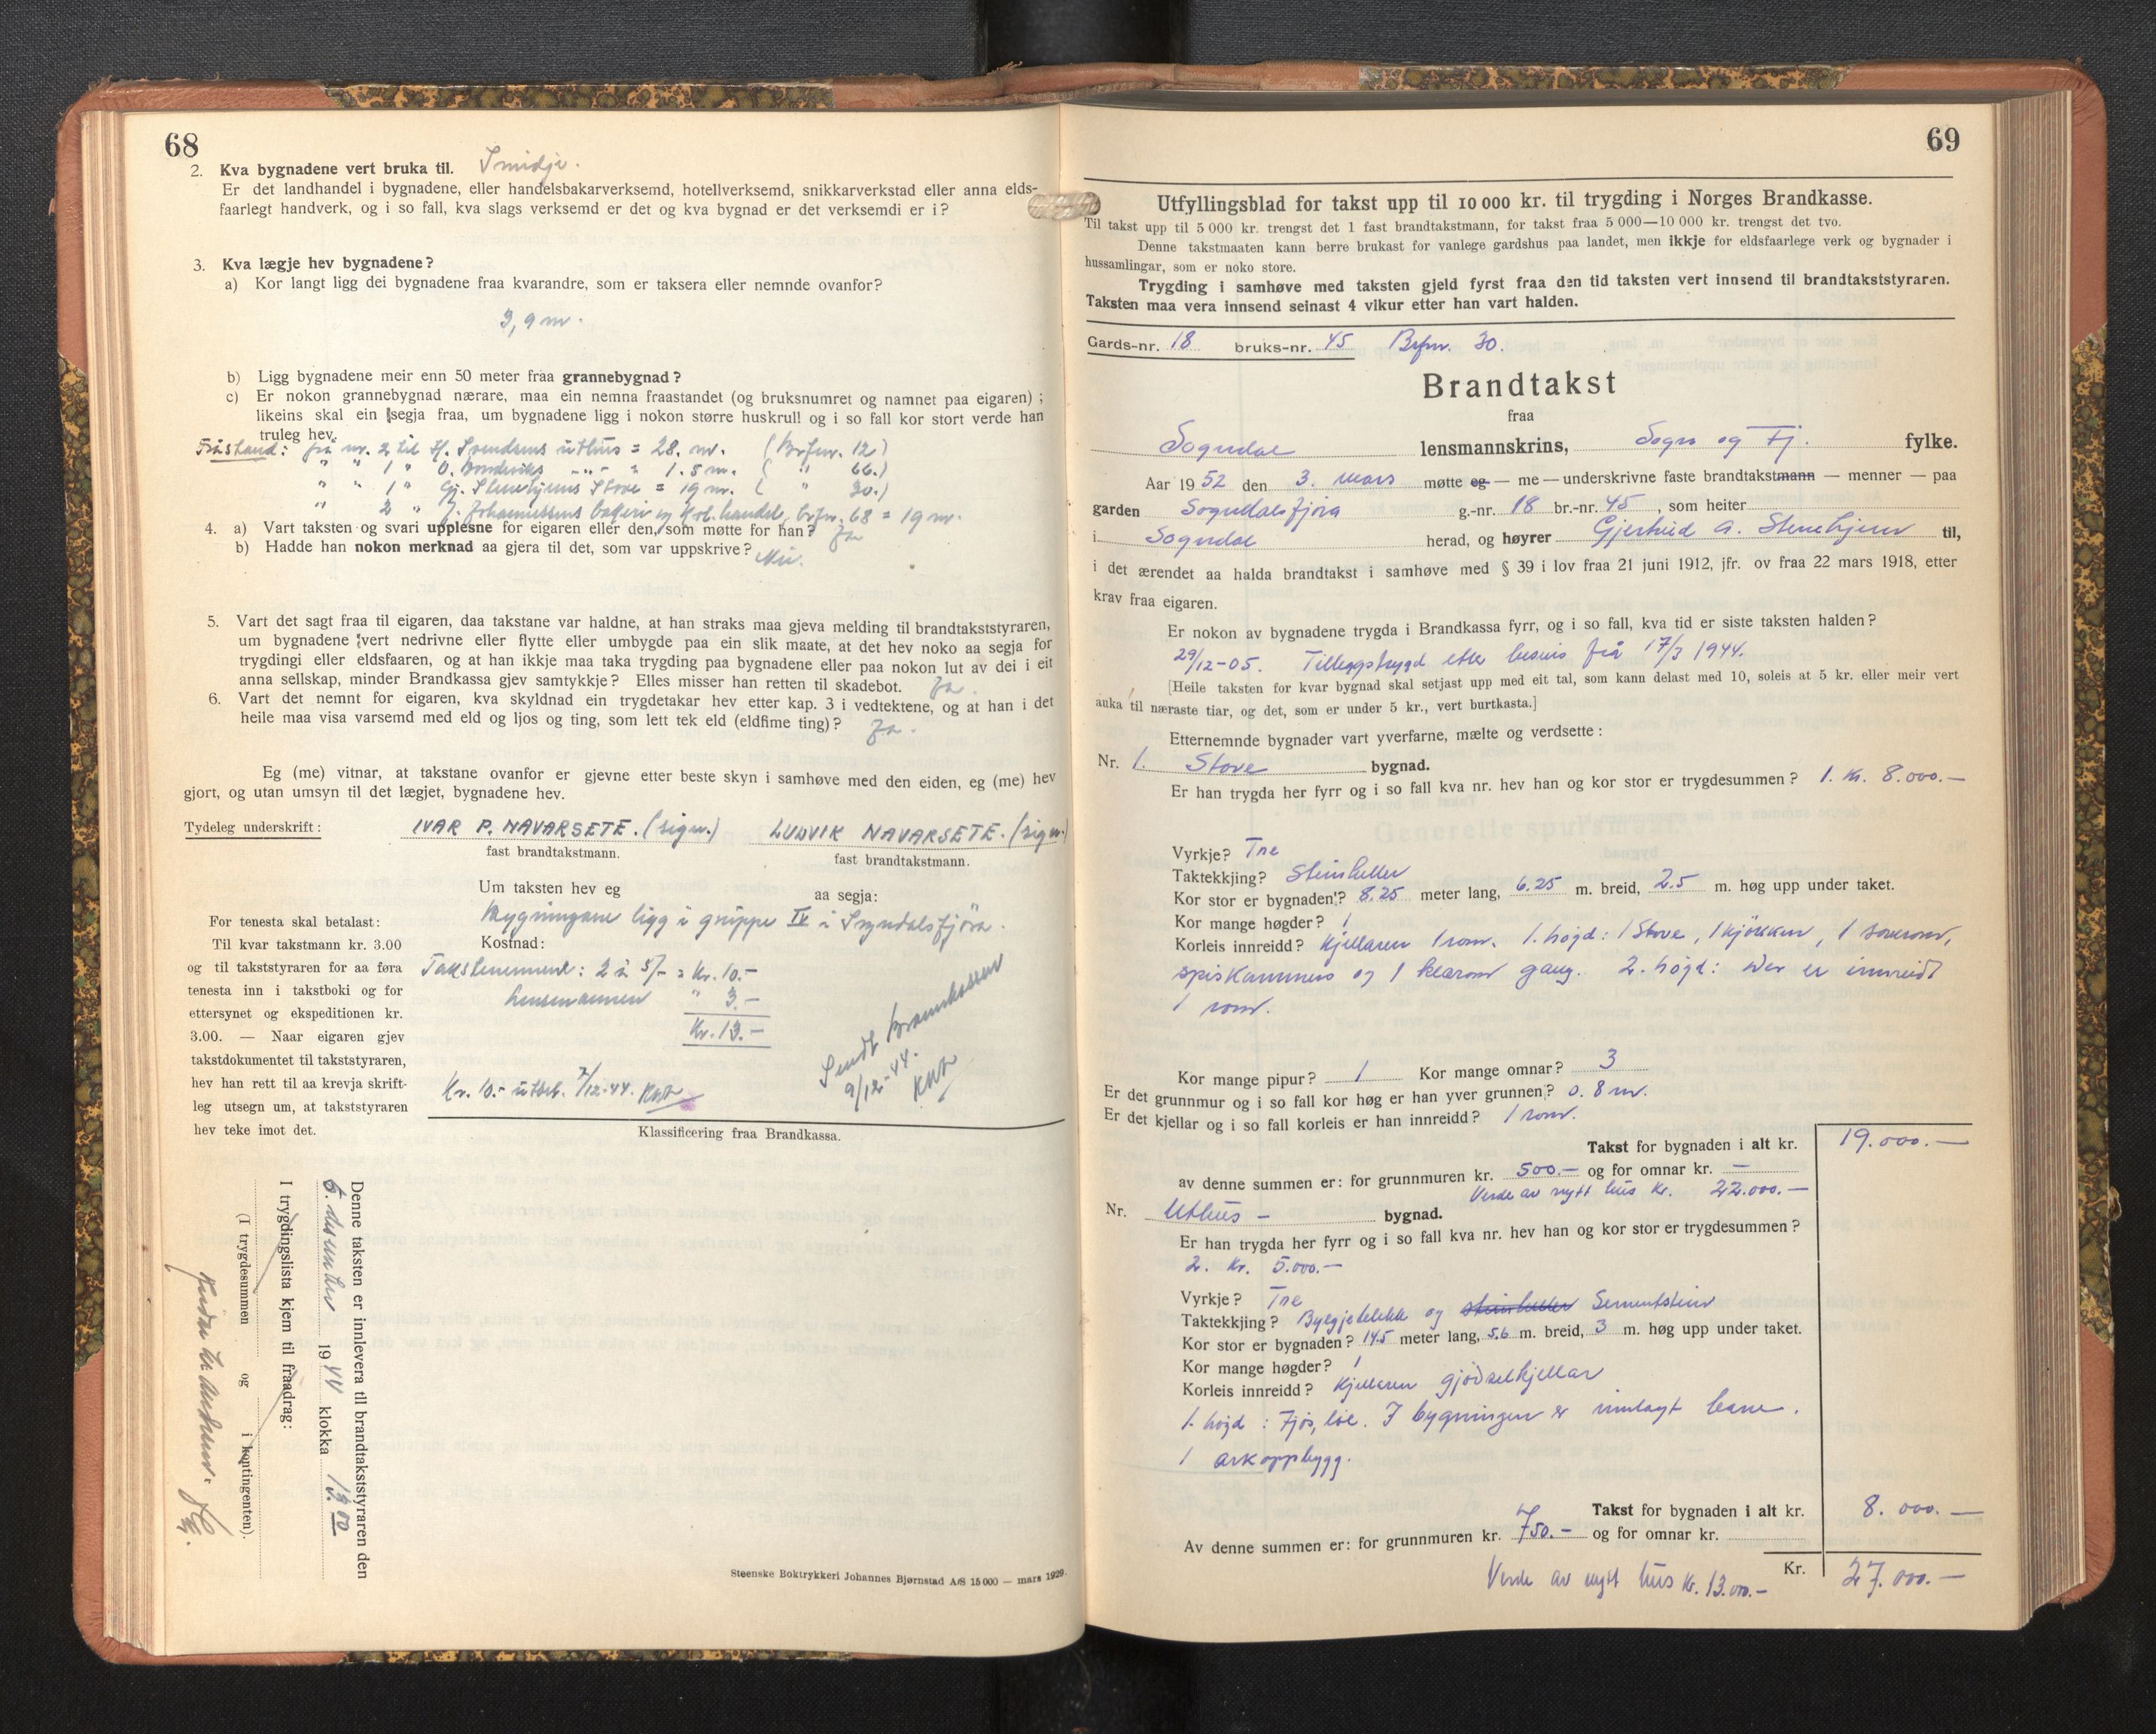 68
2. Kva bygnadene vert bruka til. Smidje.
Er det landhandel i bygnadene, eller handelsbakarverksemd, hotellverksemd, snikkarverkstad eller anna elds-
faarlegt handverk, og i so fall, kva slags verksemd er det og kva bygnad er det verksemdi er i?
3. Kva lægje hev bygnadene?
a) Kor langt ligg dei bygnadene fraa kvarandre, som er taksera eller nemnde ovanfor?
3,9 m.
b) Ligg bygnadene meir enn 50 meter fraa grannebygnad?
c) Er nokon grannebygnad nærare, maa ein nemna fraastandet (og bruksnumret og namnet paa eigaren);
likeins skal ein segja fraa, um bygnadene ligg i nokon større huskrull og i so fall kor stort verde han
truleg hev.
Fråstand: frå nr. 2 til Hj. Svendsens uthus = 28. m. (Brfnr. 12)
" " 1 " O. -"- " 1.5 m. ( " 66.)
" " 1 " Gj. Stenehjems Stove = 19 m. ( " 30.)
" 2 " J. Johannessens bakeri og kol.handel, brfnr. 68 = 19 m.
4. a) Vart taksten og svari upplesne for eigaren eller den, som møtte for han? Ja
b) Hadde han nokon merknad aa gjera til det, som var uppskrive? Nei.
5. Vart det sagt fraa til eigaren, daa takstane var haldne, at han straks maa gjeva melding til brandtakststyraren,
um bygnadene vert nedrivne eller flytte eller umbygde paa ein slik maate, at det hev noko aa segja for
trygdingi eller eldsfaaren, og at han ikkje maa taka trygding paa bygnadene eller paa nokon lut av dei i eit
anna sellskap, minder Brandkassa gjev samtykkje? Elles misser han retten til skadebot. Ja.
6. Vart det nemnt for eigaren, kva skyldnad ein trygdetakar hev etter kap. 3 i vedtektene, og at han i det
heile maa visa varsemd med eld og ljos og ting, som lett tek eld (eldfime ting)? Ja.
Eg (me) vitnar, at takstane ovanfor er gjevne etter beste skyn i samhøve med den eiden, eg (me) hev
gjort, og utan umsyn til det lægjet, bygnadene hev.
Tydeleg underskrift: IVAR P. NAVARSETE. (sign.) LUDVIK NAVARSETE. (sign.)
fast brandtakstmann. fast brandtakstmann.
Um taksten hev eg aa segja:
Bygningane ligg i gruppe IV i Sogndalsfjøra.
Kostnad:
Takstmennene: 2 à 5/- = Kr. 10.-
Lensmannen " 3.-
Kr. 13.-
Sendt Brannkassen
9/12-44.
Kr. 10.- utbet. 7/12-44.
For tenesta skal betalast:
Til kvar takstmann kr. 3.00
og til takststyraren for aa føra
tenesta inn i takstboki og for
ettersynet og ekspeditionen kr.
3.00. — Naar eigaren gjev
takstdokumentet til takststyraren,
hev han rett til aa krevja skrift-
leg utsegn um, at takststyraren
hev teke imot det.
Klassificering fraa Brandkassa.
Denne taksten er innlevera til brandtakststyraren den
6. desember 1944 klokka 13.00
I trygdingslista kjem til fraadrag:
(I trygdesummen og i kontingenten).
Steenske Boktrykkeri Johannes Bjørnstad A/S 15 000 — mars 1929.
69
Utfyllingsblad for takst upp til 10 000 kr. til trygding i Norges Brandkasse.
Til takst upp til 5 000 kr. trengst det 1 fast brandtakstmann, for takst fraa 5 000—10 000 kr. trengst det tvo.
Denne takstmaaten kann berre brukast for vanlege gardshus paa landet, men ikkje for eldsfaarlege verk og bygnader i
hussamlingar, som er noko store.
Trygding i samhøve med taksten gjeld fyrst fraa den tid taksten vert innsend til brandtakststyraren.
Taksten maa vera innsend seinast 4 vikur etter han vart halden.
Gards-nr. 18 bruks-nr. 45 Brfnr. 30.
Brandtakst
fraa
Sogndal lensmannskrins, Sogn og Fj. fylke.
Aar 1952 den 3. mars møtte eg — me — underskrivne faste brandtakstmann — menner — paa
garden Sogndalsfjøra g.-nr. 18 br.-nr. 45, som heiter
i Sogndal herad, og høyrer Gjertrud A. Stenehjem til,
i det ærendet aa halda brandtakst i samhøve med § 39 i lov fraa 21 juni 1912, jfr. ov fraa 22 mars 1918, etter
krav fraa eigaren.
Er nokon av bygnadene trygda i Brandkassa fyrr, og i so fall, kva tid er siste taksten halden?
29/12-05. Tilleggstrygd etter beuis frå 17/3 1944.
[Heile taksten for kvar bygnad skal setjast upp med eit tal, som kann delast med 10, soleis at 5 kr. eller meir vert
auka til næraste tiar, og det, som er under 5 kr., vert burtkasta.]
Etternemnde bygnader vart yverfarne, mælte og verdsette:
Nr. 1. Stove bygnad.
Er han trygda her fyrr og i so fall kva nr. hev han og kor stor er trygdesummen? 1. Kr. 8.000.—
Vyrkje? Tre
Taktekkjing? Steinheller
Kor stor er bygnaden? 8.25 meter lang, 6.25 m. breid, 2.5 m. høg upp under taket.
Kor mange høgder? 1
Korleis innreidd? Kjellaren 1 rom. 1. høgd: 1 Stove, 1 kjøkken, 1 soverom,
spiskammers og 1 klærom gang. 2. høgd: der er innreidt
1 rom.
Kor mange pipur? 1 Kor mange omnar? 3
Er det grunnmur og i so fall kor høg er han yver grunnen? 0.8 m.
Er det kjellar og i so fall korleis er han innreidd? 1 rom.
Takst for bygnaden i alt kr. 19.000.—
av denne summen er: for grunnmuren kr. 500.— og for omnar kr. —
Verde av nytt hus kr. 22.000.—
Nr. Uthus — bygnad.
Er han trygda her fyrr og i so fall kva nr. hev han og kor stor er trygdesummen?
2. Kr. 5.000.—
Vyrkje? Tre
Taktekkjing? Bylgjeblekk og steinheller Sementstein
Kor stor er bygnaden? 14.5 meter lang, 5.6 m. breid, 3 m. høg upp under taket.
Kor mange høgder? 1
Korleis innreidd? Kjellaren gjødselkjellar
1. høgd: Fjøs, løe. I bygningen er innlagt
1 arkoppbygg.
Takst for bygnaden i alt kr. 8.000.—
Av denne summen er: for grunnmuren kr. 750.— og for omnar kr.
Kr. 27.000.—
Verde av nytt hus kr. 13.000.—